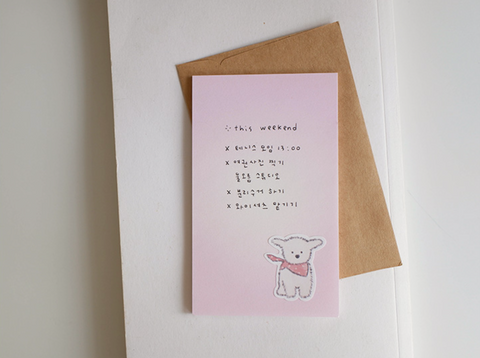 this weekend
x 테니스 모임 13:00
x 여권사진 찍기
홀드홈 스튜디오
x 분리수거 하기
x 와이셔츠 맡기기